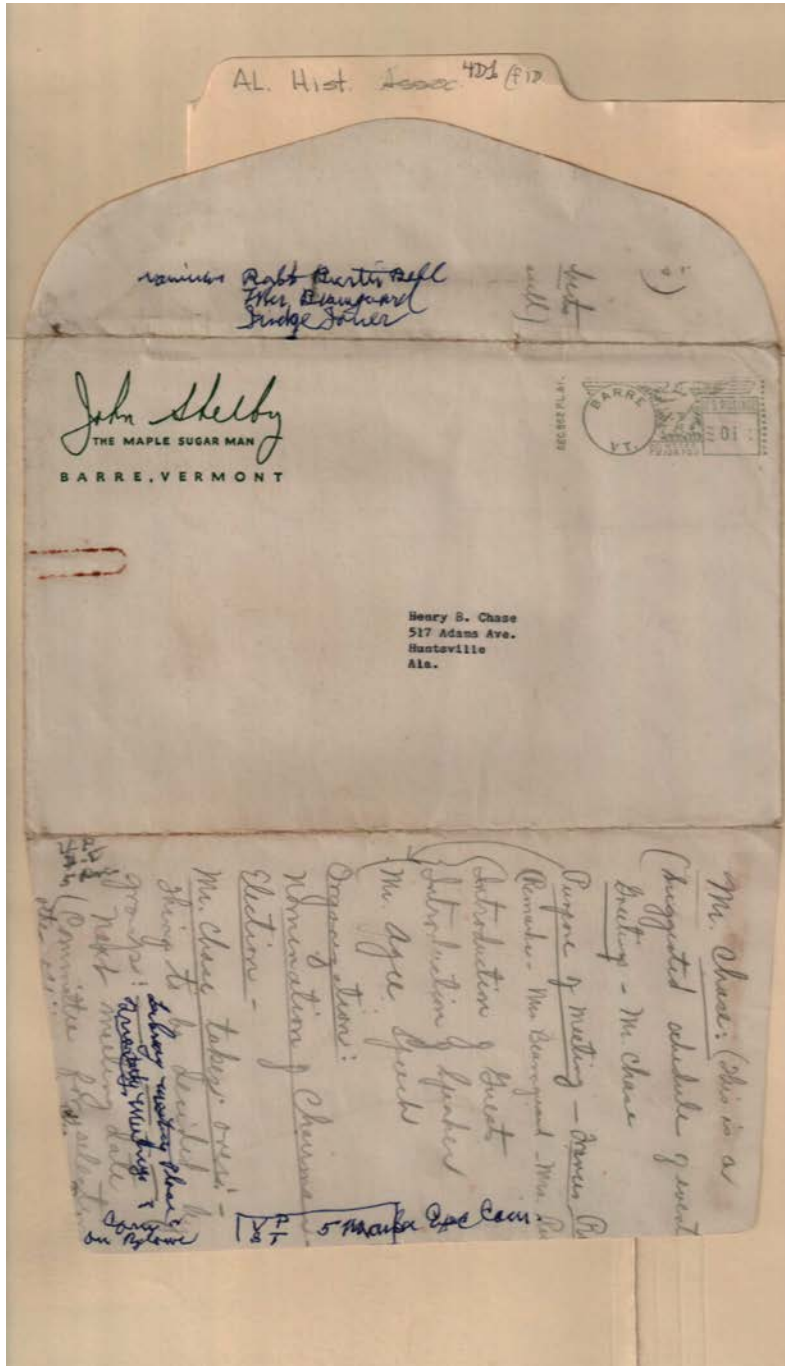 AL. Hist. Assoc. 4D1
Robt Curtis Bell
Mrs. Beauregard
Judge Joiner
John Shelby
THE MAPLE SUGAR MAN
BARRE, VERMONT
BARRE
VT.
Henry B. Chase
517 Adams Ave.
Huntsville
Ala.
Mr. Chase: (This is a
(suggested schedule of event
Greetings - Mr. Chase
Purpose of Meeting - Frances
Remarks - Mrs Beauregard - Mrs.
Introduction of Guests
Introduction of Speaker
Mr. Agee Speech
Organization:
Nomination of Chairman
Election -
Mr. Chase takes over: -
things to be decided by
groups: Library - meeting place
Meetings
next meeting date
(Committee for selecting
5 member Exe Com.